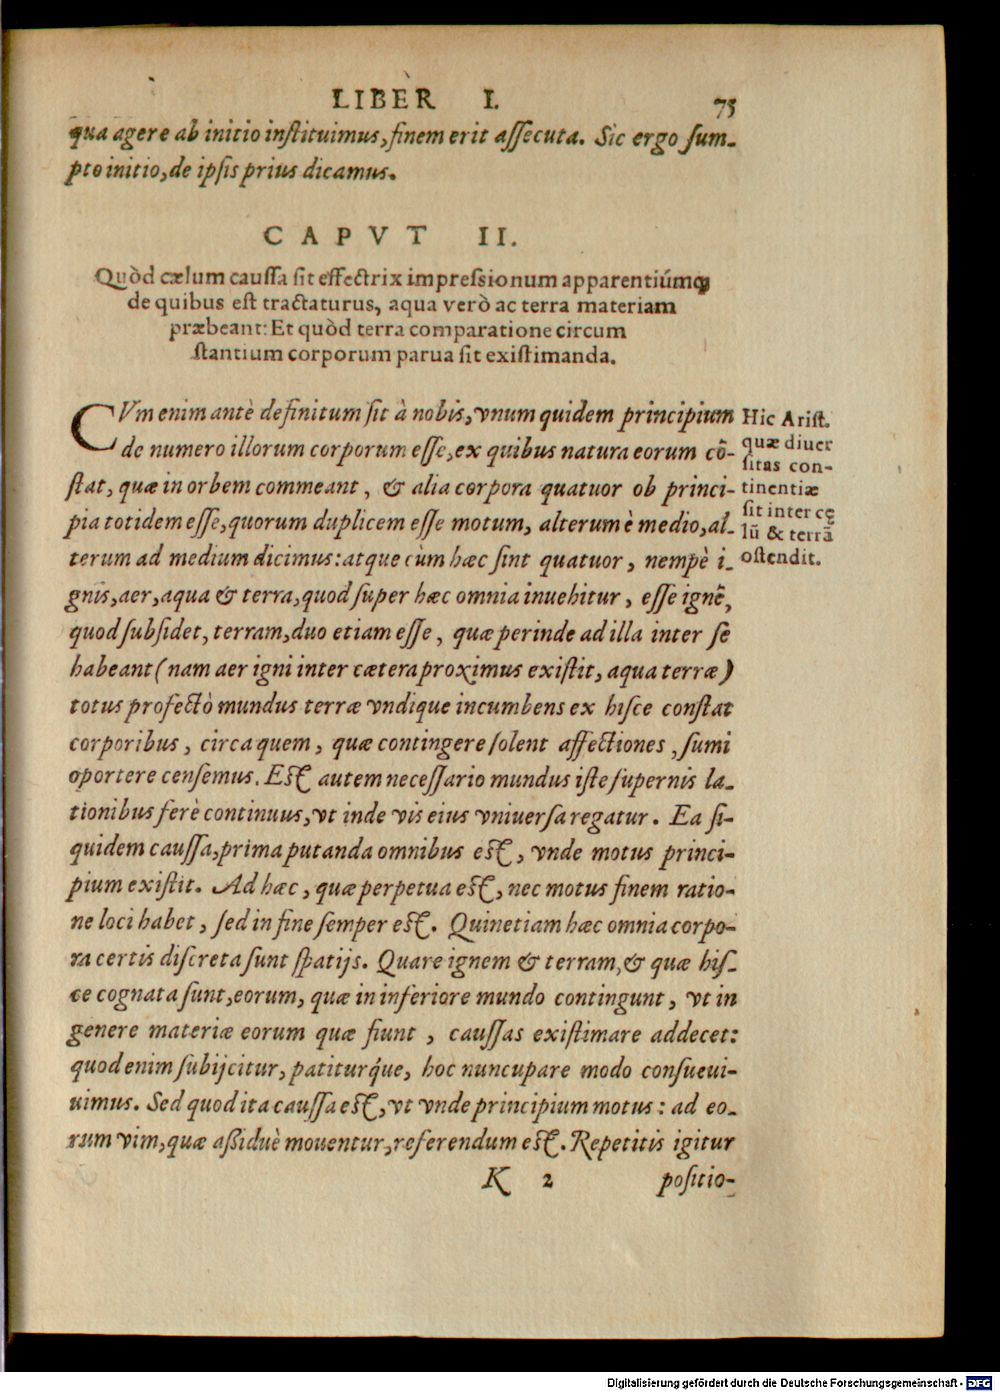 LIBER I. 75
qua agere ab initio instituimus, finem erit assecuta. Sic ergo sum-
pto initio, de ipsis prius dicamus.
CAPVT II.
Quòd cælum caussa sit effectrix impressionum apparentiúmq;
de quibus est tractaturus, aqua verò ac terra materiam
præbeant: Et quòd terra comparatione circum
stantium corporum parua sit existimanda.
CVm enim antè definitum sit à nobis, vnum quidem principium
de numero illorum corporum esse, ex quibus natura eorum cō-
stat, quæ in orbem commeant, & alia corpora quatuor ob princi-
pia totidem esse, quorum duplicem esse motum, alterum è medio, al-
terum ad medium dicimus: atque cùm hæc sint quatuor, nempè i-
gnis, aer, aqua & terra, quod super hæc omnia inuehitur, esse ignē,
quod subsidet, terram, duo etiam esse, quæ perinde ad illa inter se
habeant (nam aer igni inter cætera proximus existit, aqua terræ)
totus profectò mundus terræ vndique incumbens ex hisce constat
corporibus, circa quem, quæ contingere solent affectiones, sumi
oportere censemus. Est autem necessario mundus iste supernis la-
tionibus ferè continuus, vt inde vis eius vniuersa regatur. Ea si-
quidem caussa, prima putanda omnibus est, vnde motus princi-
pium existit. Ad hæc, quæ perpetua est, nec motus finem ratio-
ne loci habet, sed in fine semper est. Quinetiam hæc omnia corpo-
ra certis discreta sunt spatijs. Quare ignem & terram, & quæ his-
ce cognata sunt, eorum, quæ in inferiore mundo contingunt, vt in
genere materiæ eorum quæ fiunt, caussas existimare addecet:
quod enim subijcitur, patiturq́ue, hoc nuncupare modo consueui-
uimus. Sed quod ita caussa est, vt vnde principium motus: ad eo-
rum vim, quæ assiduè mouentur, referendum est. Repetitis igitur
K 2 positio-
Hic Arist.
quæ diuer
sitas con-
tinentiæ
sit inter cę
lū & terrā
ostendit.
Digitalisierung gefördert durch die Deutsche Forschungsgemeinschaft - DFG